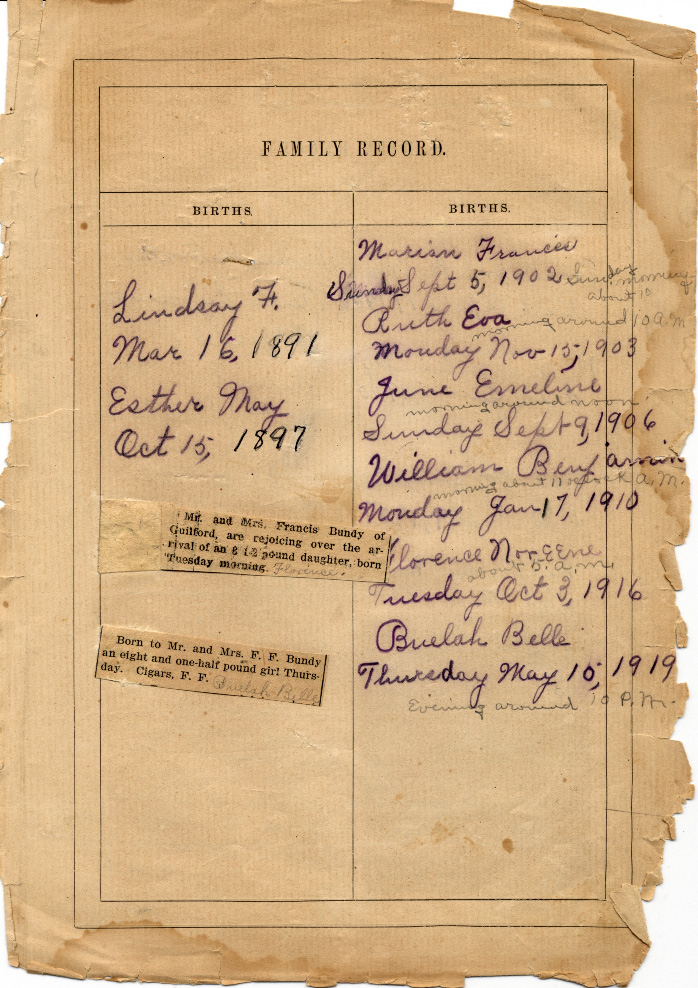 FAMILY RECORD.
BIRTHS.
Lindsay F.
Mar 16, 1891
Esther May
Oct 15, 1897
Mr. and Mrs. Francis Bundy of
Guilford, are rejoicing over the ar-
rival of an 8 1-2 pound daughter, born
Tuesday morning. Florence.
Born to Mr. and Mrs. F. F. Bundy
an eight and one-half pound girl Thurs-
day. Cigars, F. F. Buelah Belle
BIRTHS.
Marian Francis
Sunday Sept 5, 1902 Sunday morning
about 10
Ruth Eva
morning around 10 a.m.
Monday Nov 15, 1903
June Emeline
morning around noon
Sunday Sept 9, 1906
William Benjamin
morning about 11 oclock a.m.
Monday Jan 17, 1910
Florence Noreene
about 5. a.m.
Tuesday Oct 3, 1916
Buelah Belle
Thursday May 15, 1919
Evening around 10 P.M.